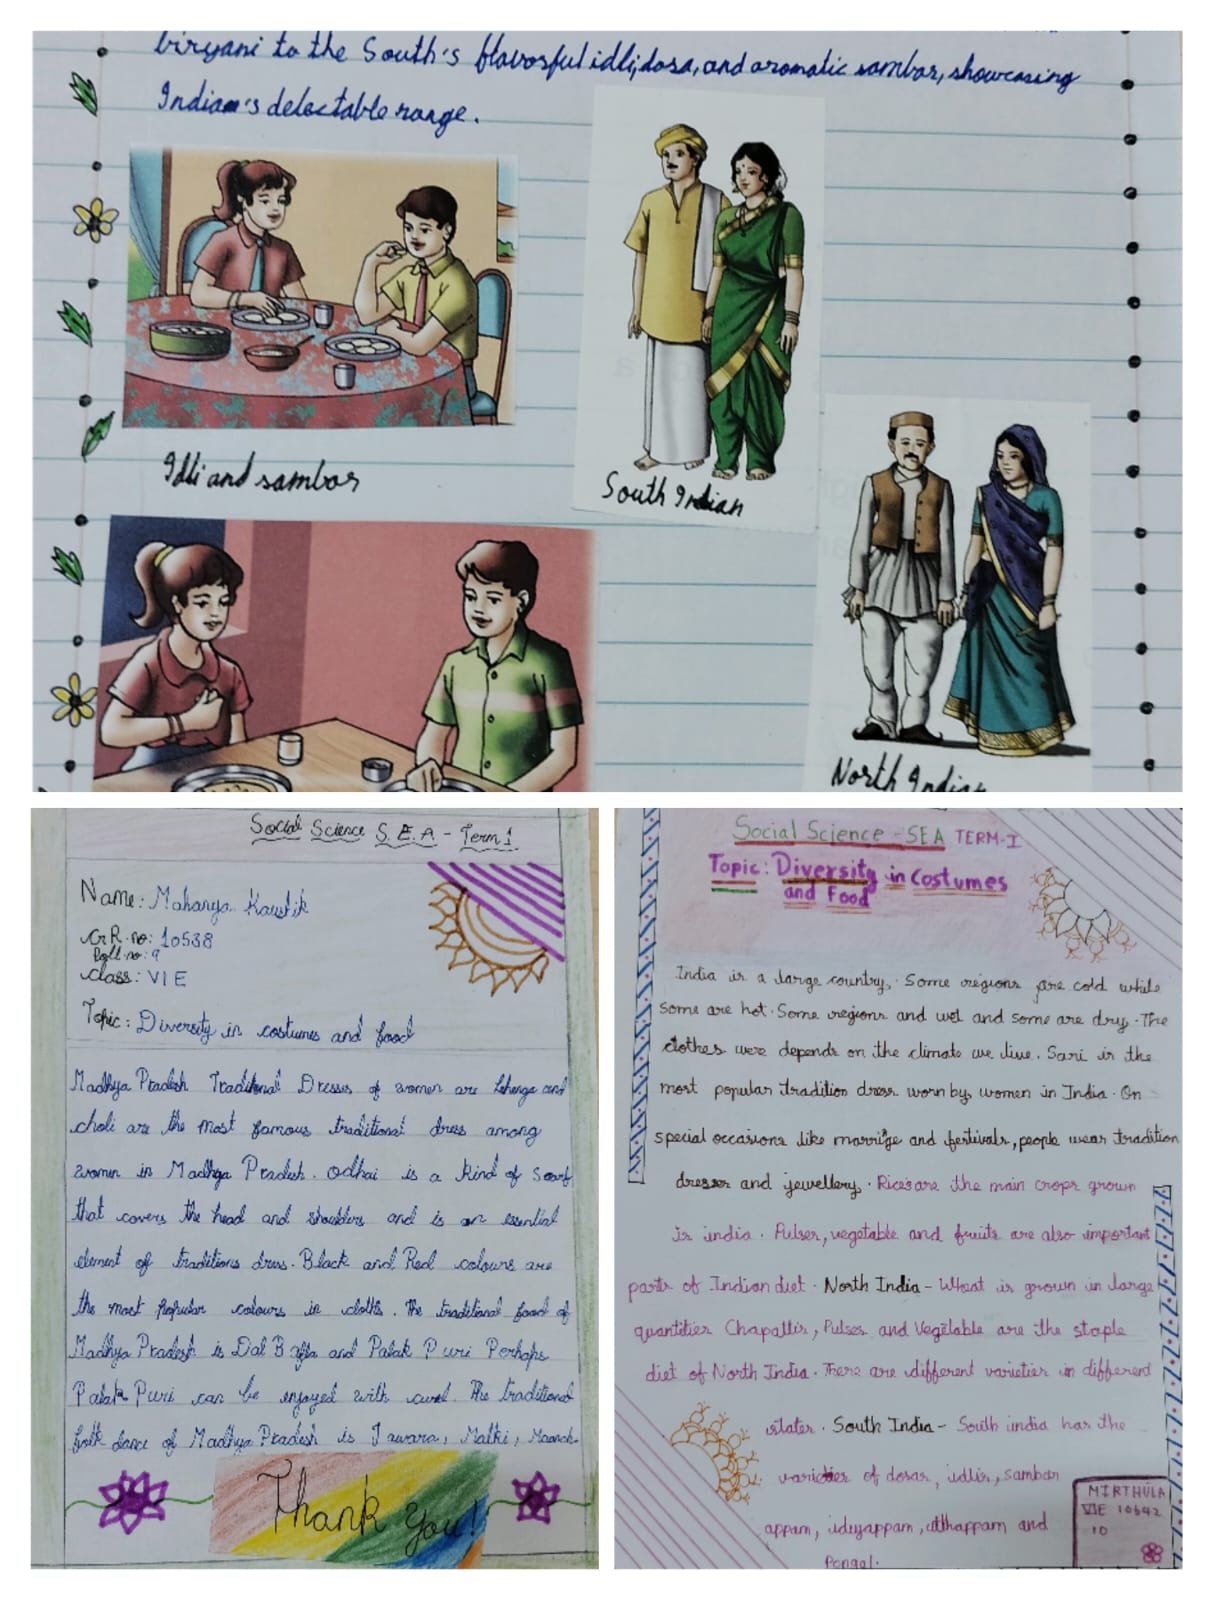 biryani to the South's flavorful idli, dosa, and aromatic sambar, showcasing
Indian's delectable range.
Idli and sambar
South Indian
North Indian
Social Science S.E.A - Term 1
Name: Mahanya Kaushik
G.R. no: 10538
Roll no: 9
Class: VI E
Topic: Diversity in costumes and food
Madhya Pradesh Traditional Dresses of women are lehenga and
choli are the most famous traditional dress among
women in Madhya Pradesh. Odhai is a kind of scarf
that covers the head and shoulders and is an essential
element of traditions dress. Black and Red colours are
the most popular colours in cloths. The traditional food of
Madhya Pradesh is Dal Bafla and Palak Puri Perhaps
Palak Puri can be enjoyed with curd. The traditional
folk dance of Madhya Pradesh is Jawara, Matki,
Thank You!
Social Science - SEA TERM-I
Topic: Diversity in Costumes
and Food
India is a large country. Some regions are cold while
some are hot. Some regions and wet and some are dry. The
clothes were depends on the climate we live. Sari is the
most popular tradition dress worn by women in India. On
special occasions like marrige and festivals, people wear tradition
dresses and jewellery. Rice's are the main crops grown
is india. Pulses, vegetable and fruits are also important
parts of Indian diet. North India - Wheat is grown in large
quantities Chapattis, Pulses and Vegetable are the staple
diet of North India. There are different varieties in different
states. South India - South india has the
varieties of dosas, idlis, sambar
appam, idiyappam, utthappam and
Pongal.
MIRTHULA
VIE 10642
10